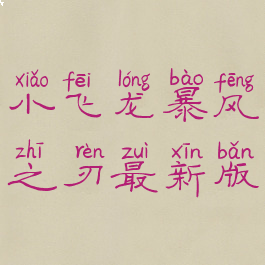 xiǎo fēi lóng bào fēng
小飞龙暴风
zhī rèn zuì xīn bǎn
之刃最新版